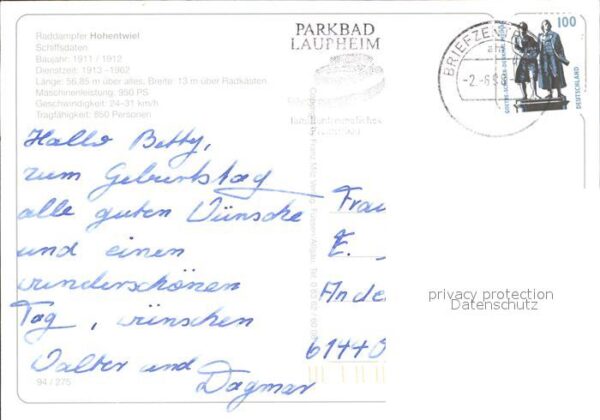 Raddampfer Hohentwiel
Schiffsdaten
Baujahr: 1911 / 1912
Dienstzeit: 1913 -1962
Länge: 56,85 m über alles, Breite: 13 m über Radkästen
Maschinenleistung: 950 PS
Geschwindigkeit: 24-31 km/h
Tragfähigkeit: 650 Personen
PARKBAD
LAUPHEIM
familienfreundliches
BRIEFZENTR
-2.-6.9
100
DEUTSCHLAND
Hallo Betty,
zum Geburtstag
alle guten Wünsche
und einen
wunderschönen
Tag, wünschen
Walter und
Dagmar
Frau
E.
Ande
61440
94 / 275
privacy protection
Datenschutz